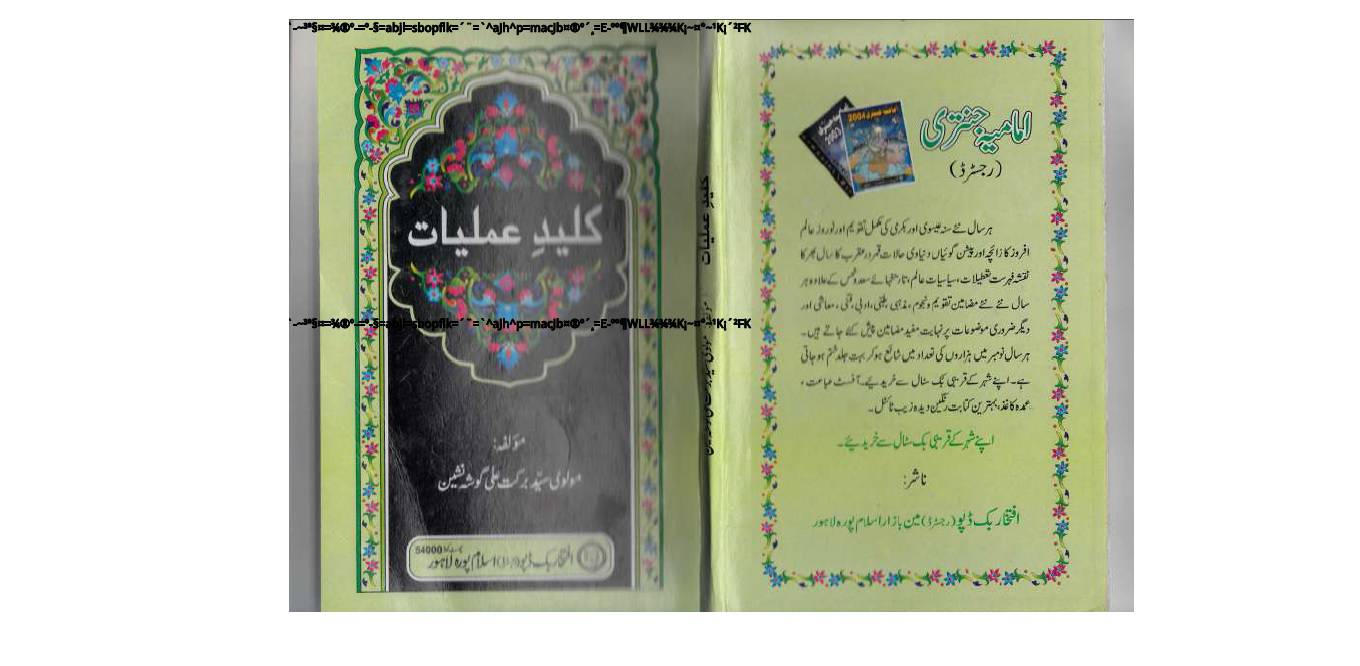 کلیدِ عملیات
مؤلفہ:
مولوی سیّد برکت علی گوشہ نشین
54000
افتخار بک ڈپو (رجسٹرڈ) اسلام پورہ لاہور
کلیدِ عملیات
امامیہ جنتری
(رجسٹرڈ)
ہر سال نئے سنہ عیسوی اور بکرمی کی مکمل تقویم اور نوروز عالم
افروز کا زائچہ اور پیشن گوئیاں دنیاوی حالات قمر در عقرب کا سال بھر کا
نقشہ فہرست تعطیلات، سیاسیات عالم، تاریخہائے سعد و نحس کے علاوہ ہر
سال نئے نئے مضامین تقویم و نجوم، مذہبی، طبّی، ادبی، فنّی، معاشی اور
دیگر ضروری موضوعات پر نہایت مفید مضامین پیش کئے جاتے ہیں۔
ہر سال نومبر میں ہزاروں کی تعداد میں شائع ہو کر بہت جلد ختم ہو جاتی
ہے۔ اپنے شہر کے قریبی بک سٹال سے خریدیے۔ آفسٹ طباعت،
عمدہ کاغذ، بہترین کتابت رنگین دیدہ زیب ٹائٹل۔
اپنے شہر کے قریبی بک سٹال سے خریدئیے۔
ناشر:
افتخار بک ڈپو (رجسٹرڈ) مین بازار اسلام پورہ لاہور